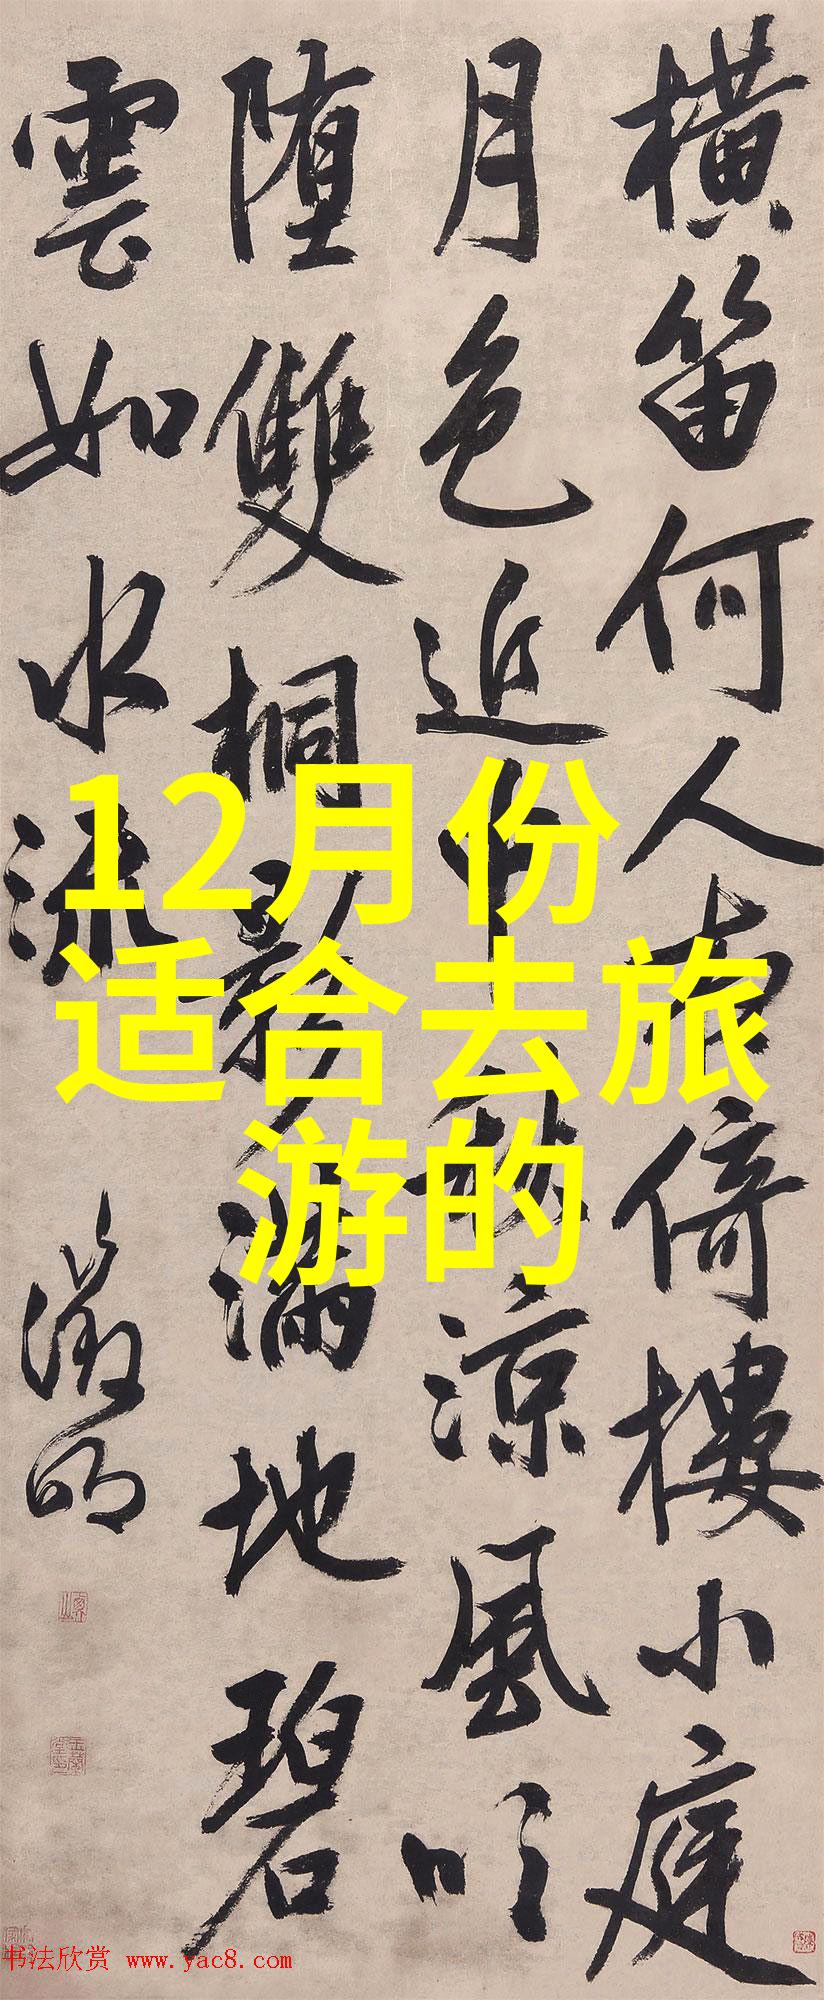 橫笛何人夜倚樓小庭
月色近中秋涼風吹
堕雙桐影滿地碧
雲如水流
徵明
12月份
适合去旅
游的
书法欣赏 www.yac8.com